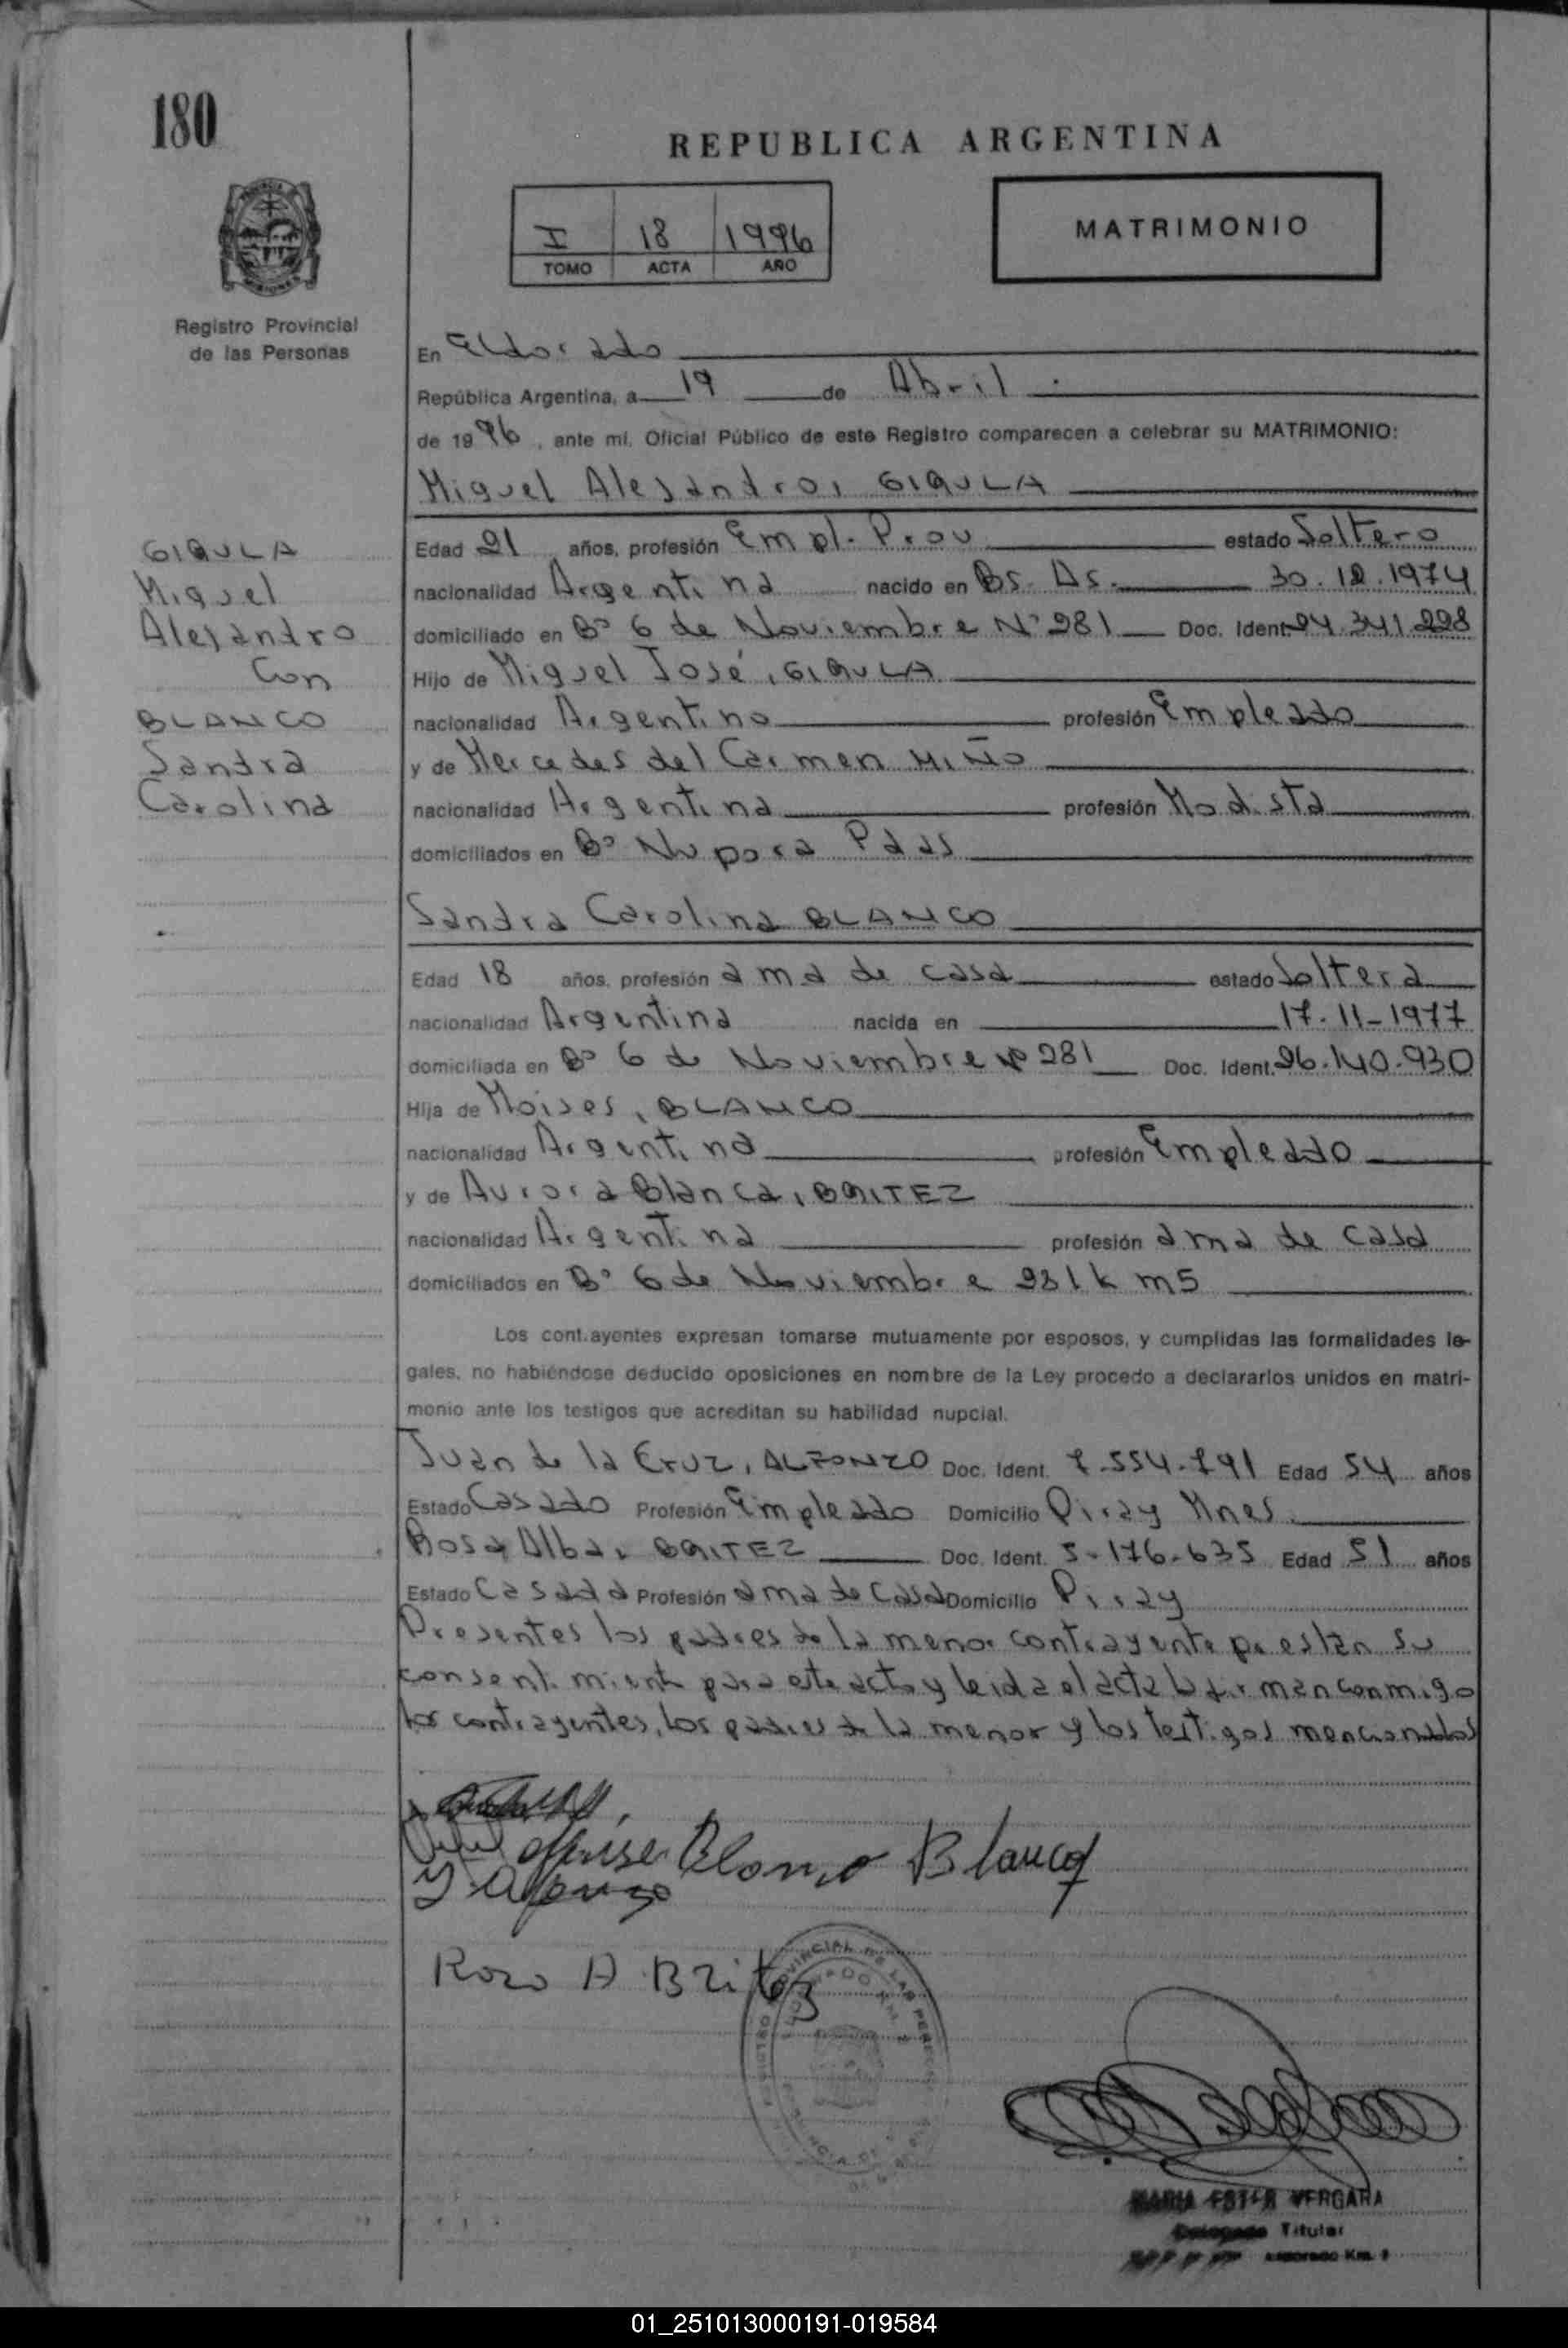 180
REPUBLICA ARGENTINA
I 18 1996
TOMO ACTA AÑO
MATRIMONIO
Registro Provincial
de las Personas
En Eldorado
República Argentina, a 19 de Abril
de 1996, ante mi, Oficial Público de este Registro comparecen a celebrar su MATRIMONIO:
Miguel Alejandro, GIQULA
GIQULA
Miguel
Alejandro
Con
BLANCO
Sandra
Carolina
Edad 21 años, profesión Empl. Prov estado Soltero
nacionalidad Argentina nacido en Bs. As. 30.12.1974
domiciliado en Bº 6 de Noviembre Nº 281 Doc. Ident. 24.341.228
Hijo de Miguel José, GIQULA
nacionalidad Argentino profesión Empleado
y de Mercedes del Carmen MIÑO
nacionalidad Argentina profesión Modista
domiciliados en Bº Ñu pora Pdas
Sandra Carolina BLANCO
Edad 18 años, profesión ama de casa estado Soltera
nacionalidad Argentina nacida en 17-11-1977
domiciliada en Bº 6 de Noviembre Nº 281 Doc. Ident. 26.140.930
Hija de Moises, BLANCO
nacionalidad Argentina profesión Empleado
y de Aurora Blanca, BRITEZ
nacionalidad Argentina profesión ama de casa
domiciliados en Bº 6 de Noviembre 281 km5
Los contrayentes expresan tomarse mutuamente por esposos, y cumplidas las formalidades le-
gales, no habiéndose deducido oposiciones en nombre de la Ley procedo a declararlos unidos en matri-
monio ante los testigos que acreditan su habilidad nupcial.
Juan de la Cruz, ALFONZO Doc. Ident. 7.554.791 Edad 54 años
Estado Casado Profesión Empleado Domicilio Piray Mnes.
Rosa Alba, BRITEZ Doc. Ident. 5-176-635 Edad 51 años
Estado Casada Profesión ama de casa Domicilio Piray
Presentes los padres de la menor contrayente prestan su
consentimiento para este acto y leida el acta la firman conmigo
los contrayentes, los padres de la menor y los testigos mencionados
Blanco Blanca
J. Alfonzo
Roza A Britez
MARIA ESTER VERGARA
Delegada Titular
Eldorado Km.
01_251013000191-019584